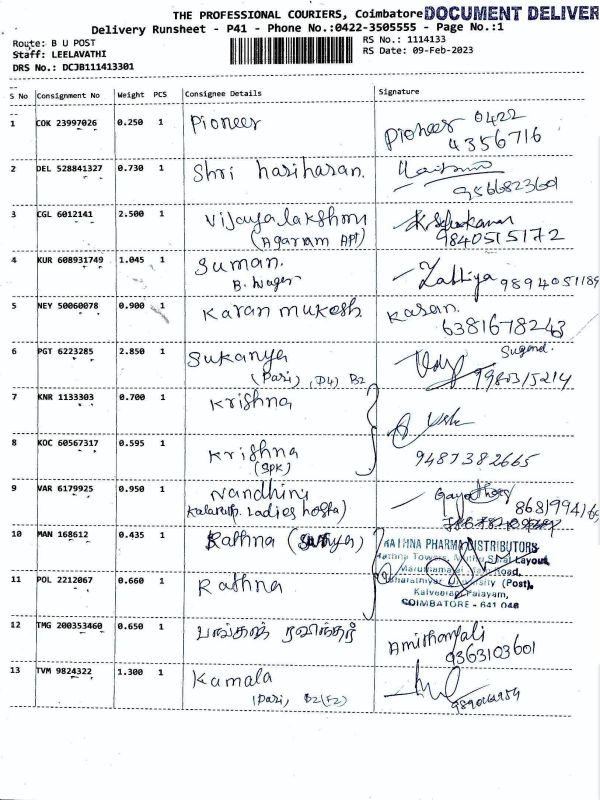 THE PROFESSIONAL COURIERS, Coimbatore DOCUMENT DELIVER
Delivery Runsheet - P41 - Phone No.:0422-3505555 - Page No.:1
Route: B U POST
RS No.: 1114133
Staff: LEELAVATHI
RS Date: 09-Feb-2023
DRS No.: DCJB111413301
S No Consignment No Weight PCS Consignee Details Signature
1 COK 23997026 0.250 1 Pioneer Pioneer 0422
4356716
2 DEL 528841327 0.730 1 Shri hariharan
9566823601
3 CGL 6012141 2.500 1 Vijayalakshmi
(Agaram Apt) 9840515172
4 KUR 608931749 1.045 1 Suman.
B. 9894051189
5 NEY 50060078 0.900 1 Karan mukesh Kasan.
6381678243
6 PGT 6223285 2.850 1 Sukanya
(Pari), D4) B2 9980315214
7 KNR 1133303 0.700 1 Krishna
8 KOC 60567317 0.595 1 Krishna
(SPK) 9487382665
9 VAR 6179925 0.950 1 Nandhini
Ladies
10 MAN 168612 0.435 1 Rathna RATHNA PHARMA DISTRIBUTORS
Rathna Towers, Layout,
Road,
11 POL 2212067 0.660 1 Rathna Bharathiyar University (Post),
Kalveerampalayam,
COIMBATORE - 641 046
12 TMG 200353460 0.650 1 ரவிந்தர் Amirthavalli
9363103601
13 TVM 9824322 1.300 1 Kamala
(Pari, B2(F2)